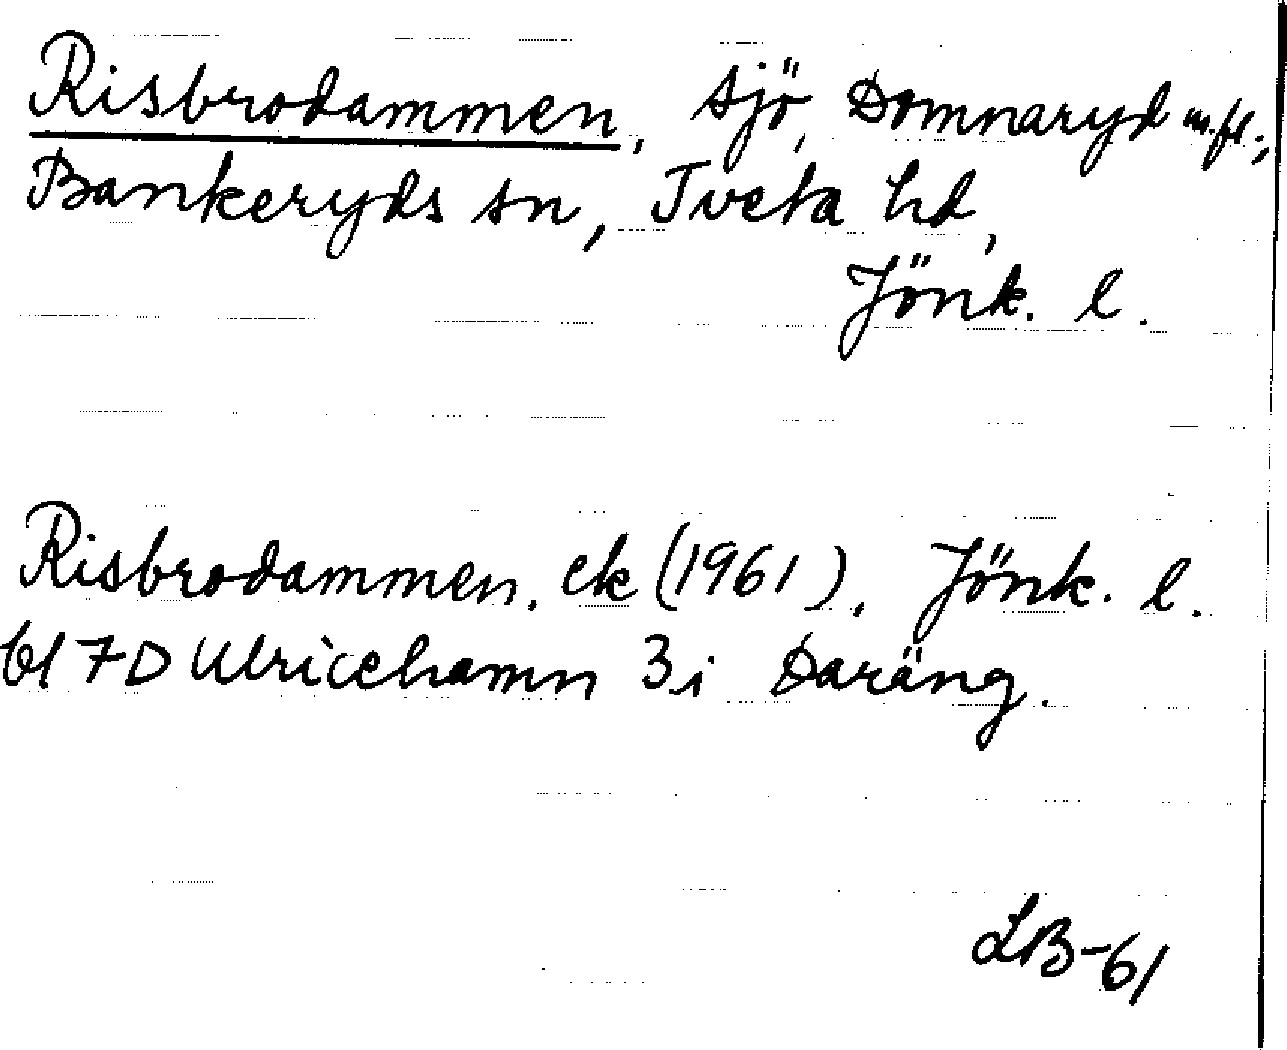 Risbrodammen, sjö, Domnaryd m.fl.;
Bankeryds sn, Tveta hd,
Jönk. l.
Risbrodammen, ek (1961), Jönk. l.
bl 7D Ulricehamn 3i Daräng.
LB-61